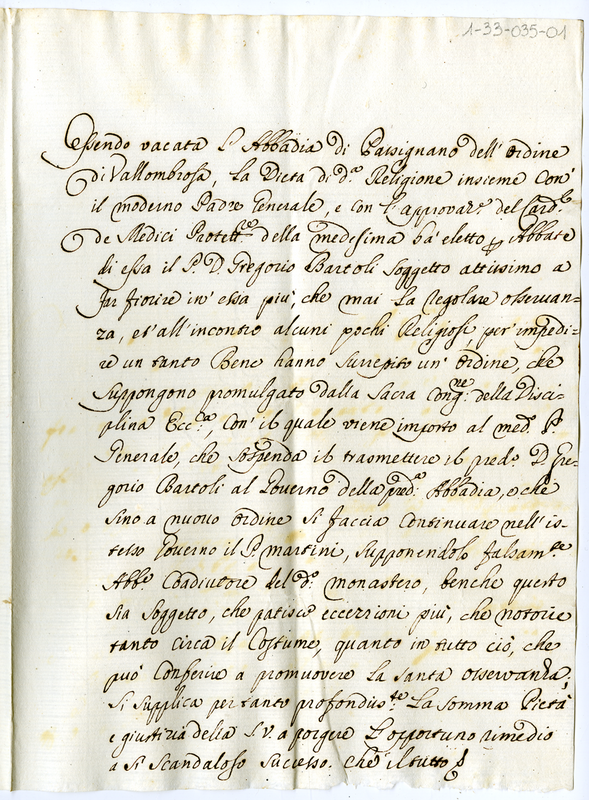 1-33-035-01
Essendo vacata l'Abbadia di Passignano dell'Ordine
di Vallombrosa, la Dieta di d.ª Religione insieme con'
il moderno Padre Generale, e con l'approvaz.e del Card.le
de Medici Protett.re della medesima hà eletto p Abbate
di essa il P. D. Gregorio Bartoli soggetto attissimo a
far fiorire in' essa più, che mai la regolare osservan=
za, et all'incontro alcuni pochi Religiosi, per impedi=
re un tanto Bene hanno surrepito un' ordine, che
suppongono promulgato dalla Sacra Cong.ne della Disci=
plina Ecc.ca, con' il quale viene imposto al med.º P.
Generale, che sospenda il trasmettere il pred.º D. Gre=
gorio Bartoli al Governo della pred.ª Abbadia, e che
sino a nuovo ordine si faccia continuare nell' is=
tesso governo il P. Martini, supponendolo falsam.te
Abb.e Coadiutore del d.º monastero, benche questo
sia soggetto, che patisce eccezzioni più, che notorie
tanto circa il Costume, quanto in tutto ciò, che
può conferire a promuovere la santa osservanza;
Si supplica per tanto profondiss.te la somma Pietà
e giustizia della S.V. a porgere l'opportuno rimedio
a si scandaloso successo. Che il tutto